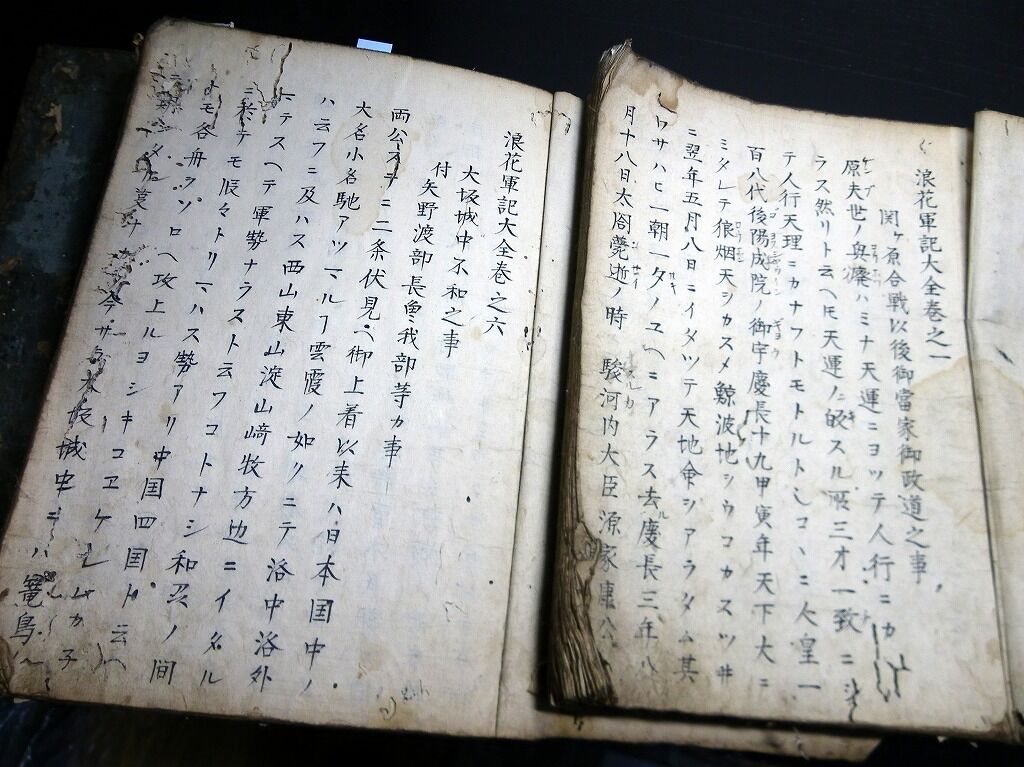 浪花軍記大全巻之一
関ヶ原合戦以後御當家御政道之事
原夫世ノ興廢ハミナ天運ニヨツテ人行ニカ
ラス然リト云ヘ𪜈天運ノ スル所三才一致ニ
テ人行天理ニカナフトモトルトレコヽニ人皇一
百八代後陽成院ノ御宇慶長十九甲寅年天下大ニ
ミタレテ狼烟天シカスメ鯨波地シウコカスツ
ニ翌年五月八日ニイタツテ天地命シアラタム其
ワサハヒ一朝一夕ノユヘニアラス去慶長三年八
月十八日太閤薨逝ノ時 駿河内大臣源家康公
浪花軍記大全巻之六
大坂城中不和之事
付矢野渡部長曽我部等カ事
両公ステニ二条伏見ヘ御上着以来ハ日本国中ノ
大名小名馳アツマルヿ雲霞ノ如クニテ洛中洛外
ハ云フニ及ハス西山東山淀山﨑牧方辺ニイタル
テスヘテ軍勢ナラスト云フコトナシ和忍ノ間
テモ叚々トリマハス勢アリ中国四国ト云ヘ
モ各舟ヲソロヘ攻上ルヨシキコヱケレ
今 大坂城中ニハ篭鳥